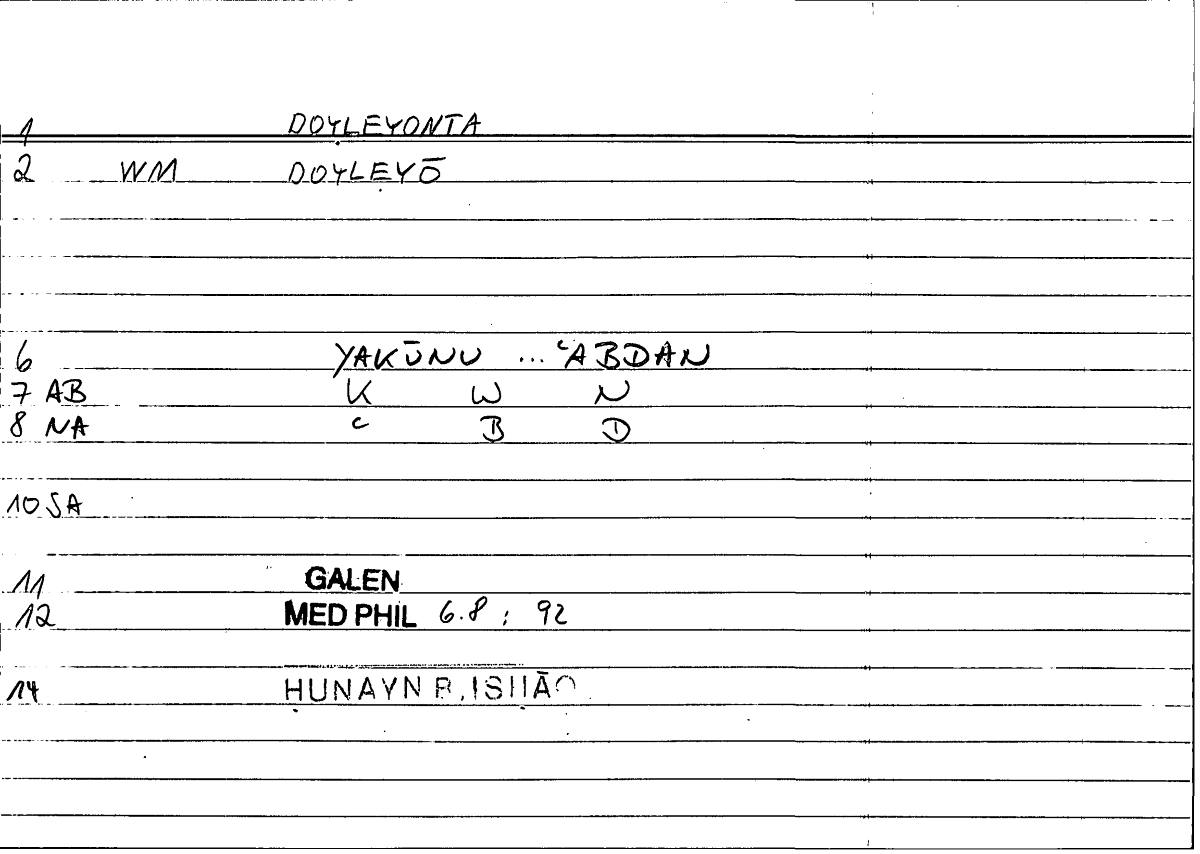 1 DOYLEYONTA
2 WM DOYLEYŌ
6 YAKŪNU ... ʿABDAN
7 AB K W N
8 NA ʿ B D
10 SA
11 GALEN
12 MED PHIL 6.8 ; 92
14 ḤUNAYN B. ISḤĀQ